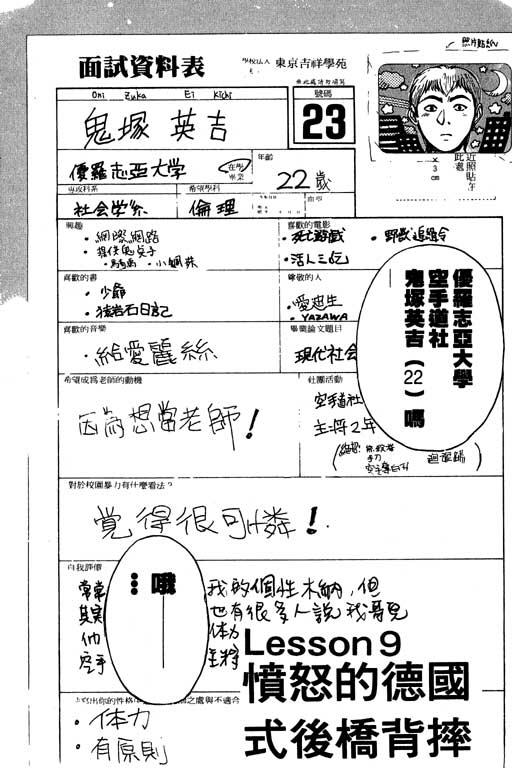 照片黏紙
面試資料表
東京吉祥學苑
Oni Zuka Ei Kichi
鬼塚 英吉
號碼
23
近照貼在
此處
×3cm
優羅志亞大学
在学
年齡
22歲
專攻科系
社会学系
希望學科
倫理
興趣
・網際網路
喜歡的電影
・死亡遊戲
・野獸追緝令
・活人三代
喜歡的書
・少爺
・猿岩石日記
尊敬的人
・YAZAWA
喜歡的音樂
・給愛麗絲
畢業論文題目
現代社会
優羅志亞大學
空手道社
鬼塚英吉(22)嗎
希望成為老師的動機
因為想當老師!
社團活動
空手道社
主將2年
迴旋踢
對於校園暴力有什麼看法?
覺得很可憐!
自我評價
常常
其実
他
空手
哦……
我的個性木納,但
也有很多人說我哥兒
体力
主將
・体力
・有原則
Lesson 9
憤怒的德國
式後橋背摔